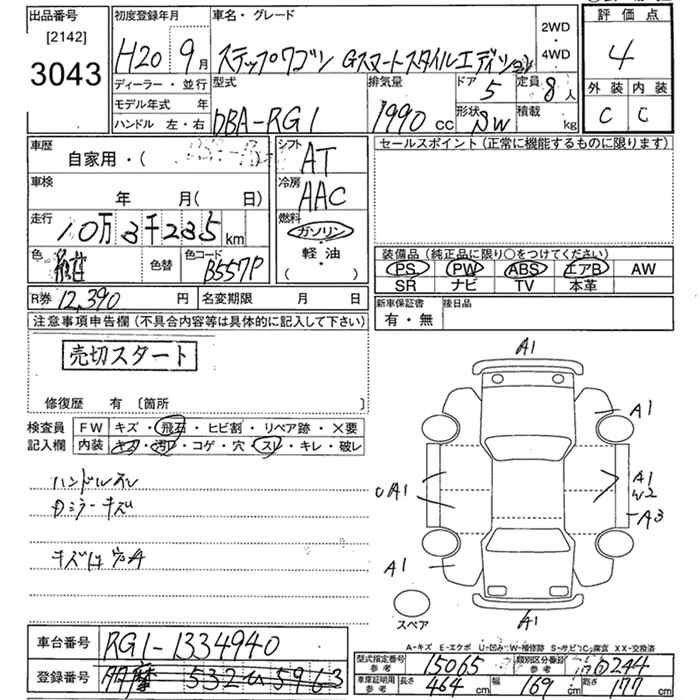 出品番号
[2142]
3043
初度登録年月
H20 9月
車名・グレード
ステップワゴン Gスマートスタイルエディション
2WD
・
4WD
評価点
4
外装 内装
C C
ディーラー・並行
モデル年式 年
ハンドル 左・右
型式
DBA-RG1
排気量
1990 cc
ドア
5
形状
SW
定員
8人
積載
kg
車歴
自家用・(
車検
年 月( 日)
走行
10万3千235 km
色
色替
色コード
B557P
シフト
AT
冷房
AAC
燃料
ガソリン
・
軽・油
( )
セールスポイント(正常に機能するものに限ります)
装備品(純正品に限り○をつけてください)
PS PW ABS エアB AW
SR ナビ TV 本革
R券 12,390 円 名変期限 月 日
新車保証書
有・無
後日品
注意事項申告欄(不具合内容等は具体的に記入して下さい)
売切スタート
修復歴 有 〔箇所 〕
検査員
記入欄
FW キズ・飛石・ヒビ割・リペア跡・×要
内装 キズ・汚れ・コゲ・穴・スレ・キレ・破レ
ハンドルスレ
Dミラーキズ
A1
A1
A1
A1
W2
A3
A1
A1
スペア
A-キズ E-エクボ U-凹み W-補修跡 S-サビ C-腐食 XX-交換済
車台番号 RG1-1334940
登録番号
型式指定番号
参考
15065
類別区分番号
参考
0244
車庫証明用
参考
長さ 464 cm 幅 169 cm 高さ 177 cm